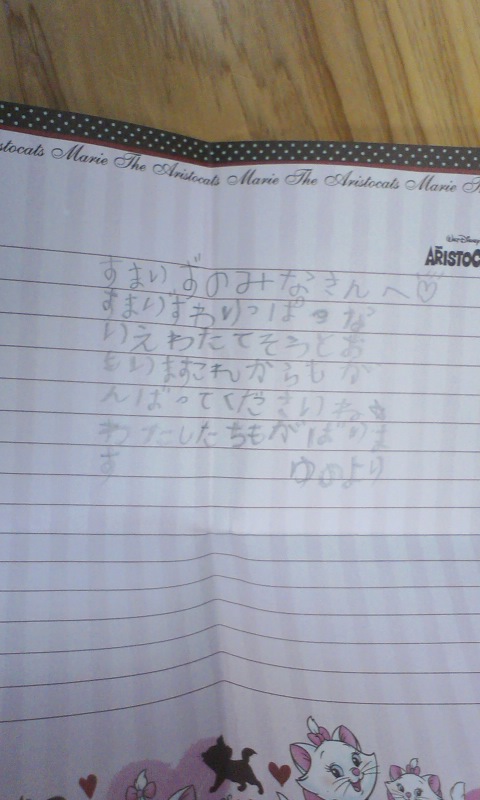 stocats Marie The Aristocats Marie The Aristocats Marie T
Walt Disney
ARISTOC
すまいずのみなさんへ♡
すまいすわいっぱつな
いえわたてそうとお
もいますこれからもが
んばってくださいね☆
わたしたちもがばりま
す　ゆめより